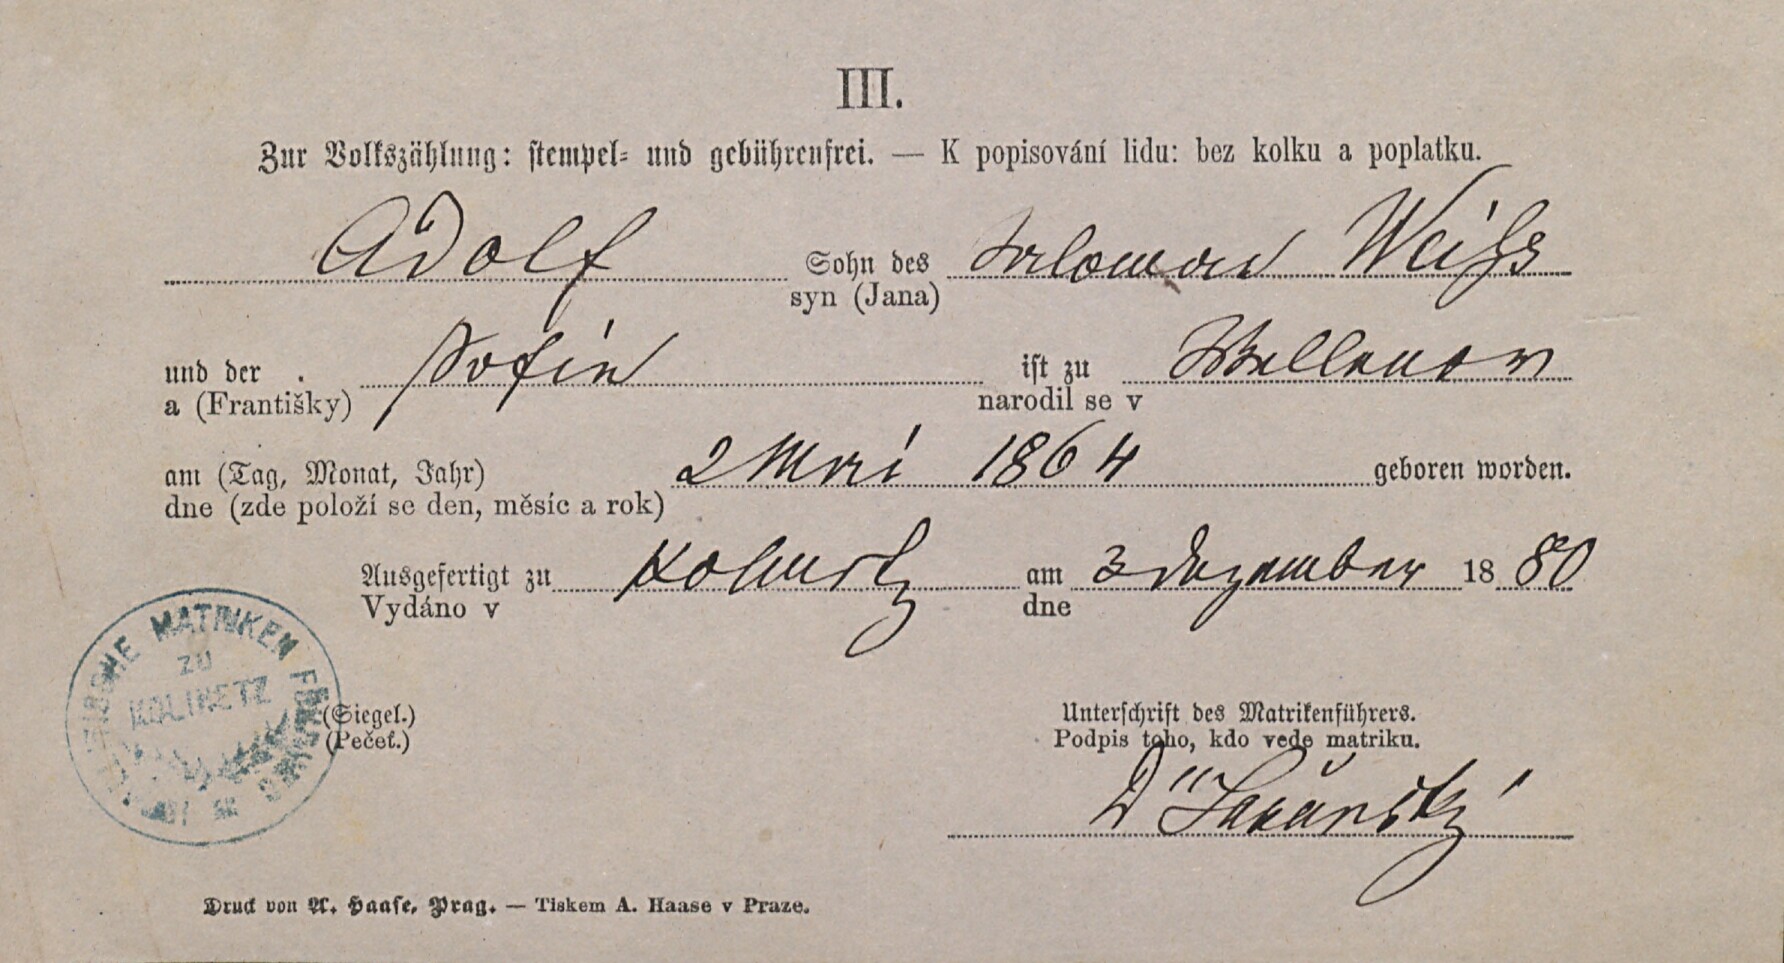 III.
Zur Volkszählung: stempel- und gebührenfrei. — K popisování lidu: bez kolku a poplatku.
Adolf Sohn des Salomon Weiss
syn (Jana)
und der Sofie ist zu
a (Františky) narodil se v
am (Tag, Monat, Jahr) 2 Mai 1864 geboren worden.
dne (zde položí se den, měsíc a rok)
Ausgefertigt zu Kolinetz am 3 Dezember 1880
Vydáno v dne
MATRIKEN
ZU
KOLINETZ
(Siegel.)
(Pečeť.)
Unterschrift des Matrikenführers.
Podpis toho, kdo vede matriku.
Druck von A. Haase, Prag. — Tiskem A. Haase v Praze.